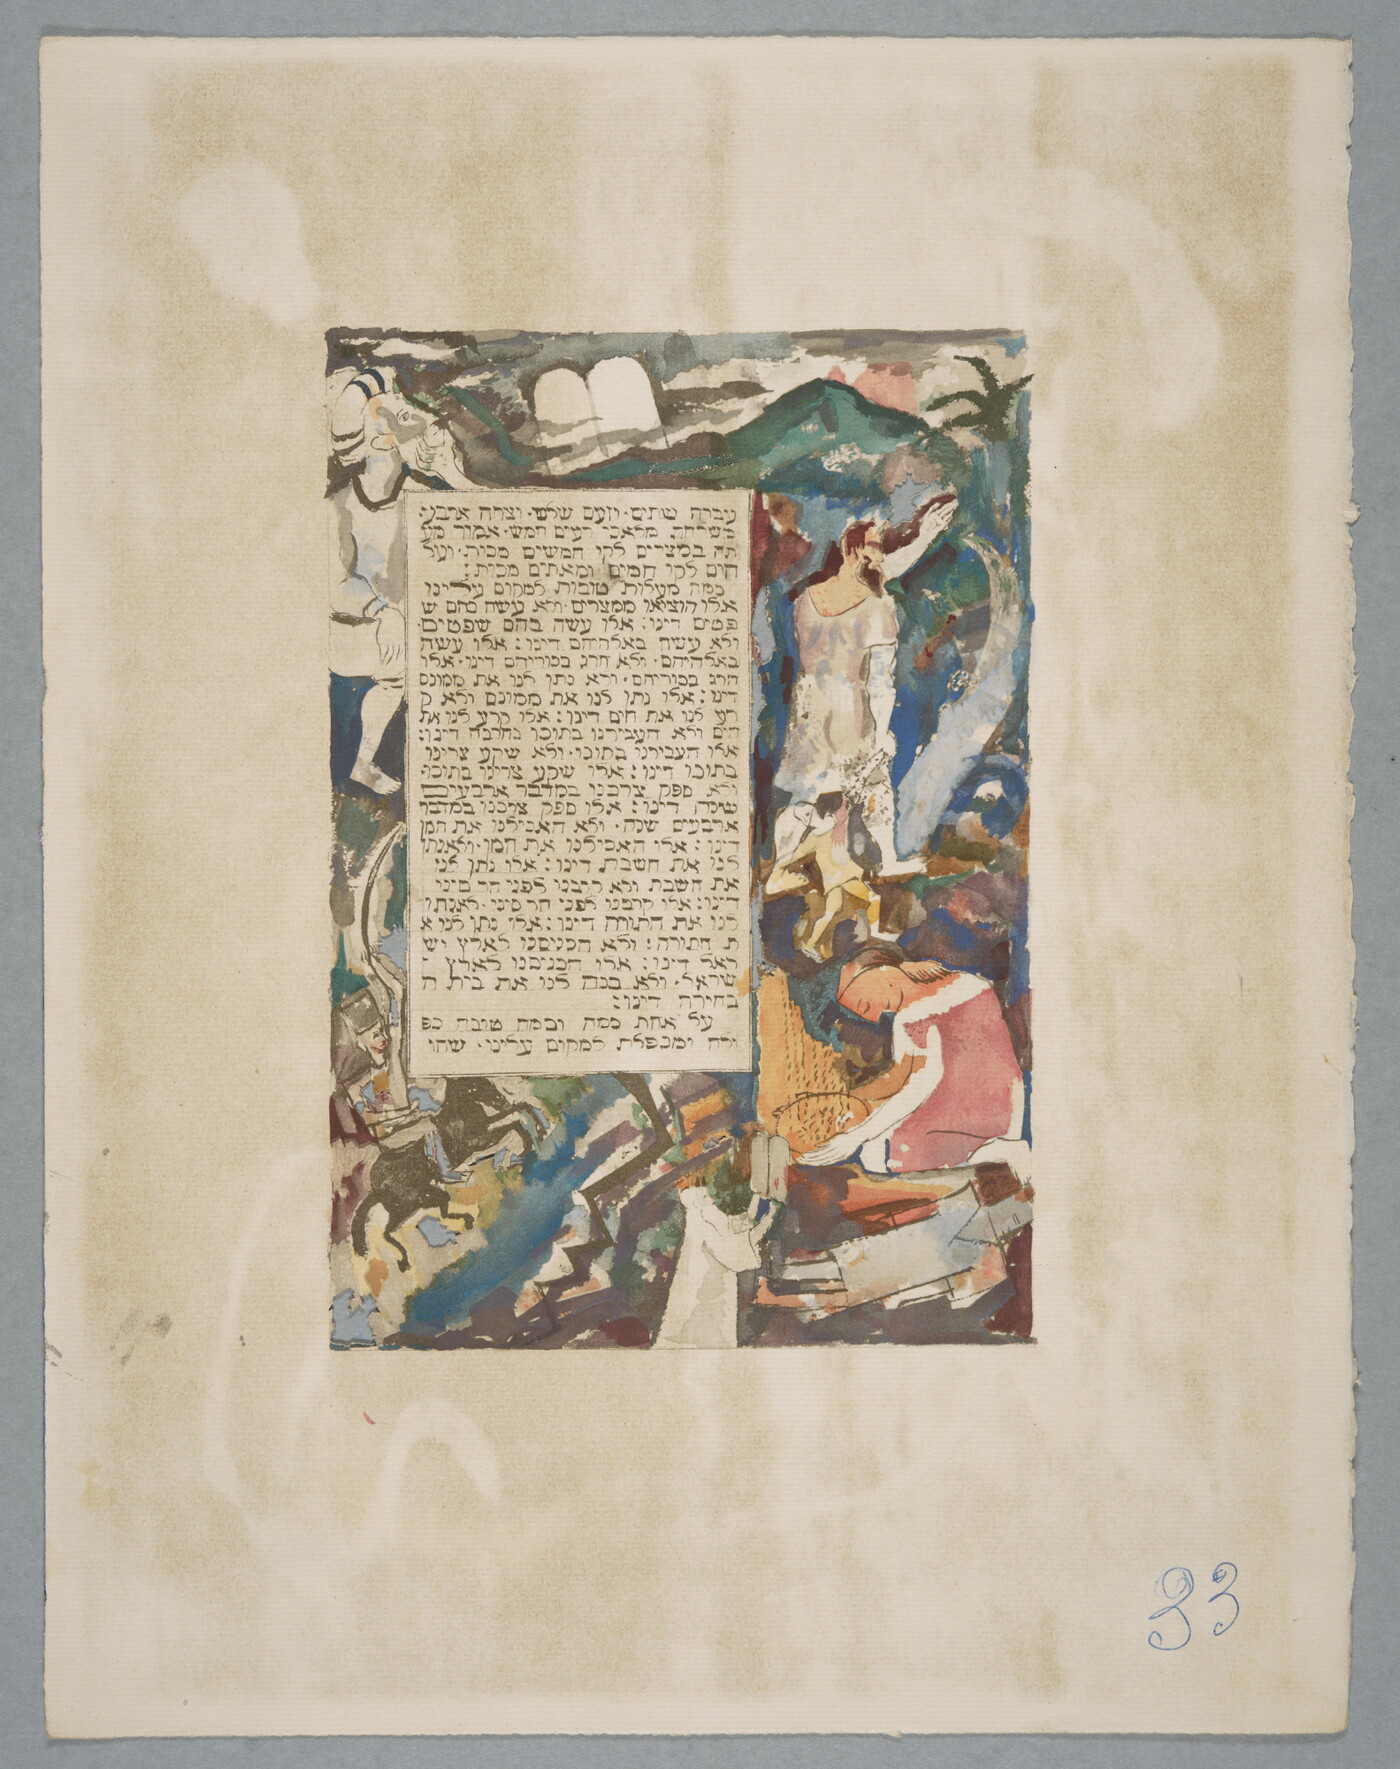 עברה שתים· וזעם שלש· וצרה ארבע·
משלחת מלאכי רעים חמש· אמור מע
תה במצרים לקו חמשים מכות· ועל
הים לקו חמים ומאתים מכות:
כמה מעלות טובות למקום עלינו
אלו הוציאנו ממצרים· ולא עשה בהם ש
פטים דינו: אלו עשה בהם שפטים·
ולא עשה באלהיהם דינו: אלו עשה
באלהיהם· ולא הרג בכוריהם דינו· אלו
הרג בכוריהם· ולא נתן לנו את ממונם
דינו: אלו נתן לנו את ממונם ולא ק
רע לנו את הים דינו: אלו קרע לנו את
הים ולא העבירנו בתוכו בחרבה דינו:
אלו העבירנו בתוכו· ולא שקע צרינו
בתוכו דינו: אלו שקע צרינו בתוכו·
ולא ספק צרכנו במדבר ארבעים
שנה דינו: אלו ספק צרכנו במדבר
ארבעים שנה· ולא האכילנו את המן
דינו: אלו האכילנו את המן· ולא נתן
לנו את השבת דינו: אלו נתן לנו
את השבת ולא קרבנו לפני הר סיני
דינו: אלו קרבנו לפני הר סיני· ולא נתן
לנו את התורה דינו: אלו נתן לנו א
ת התורה: ולא הכניסנו לארץ יש
ראל דינו: אלו הכניסנו לארץ י
שראל· ולא בנה לנו את בית ה
בחירה דינו:
על אחת כמה וכמה טובה כפ
ולה ומכפלת למקום עלינו· שהו
33